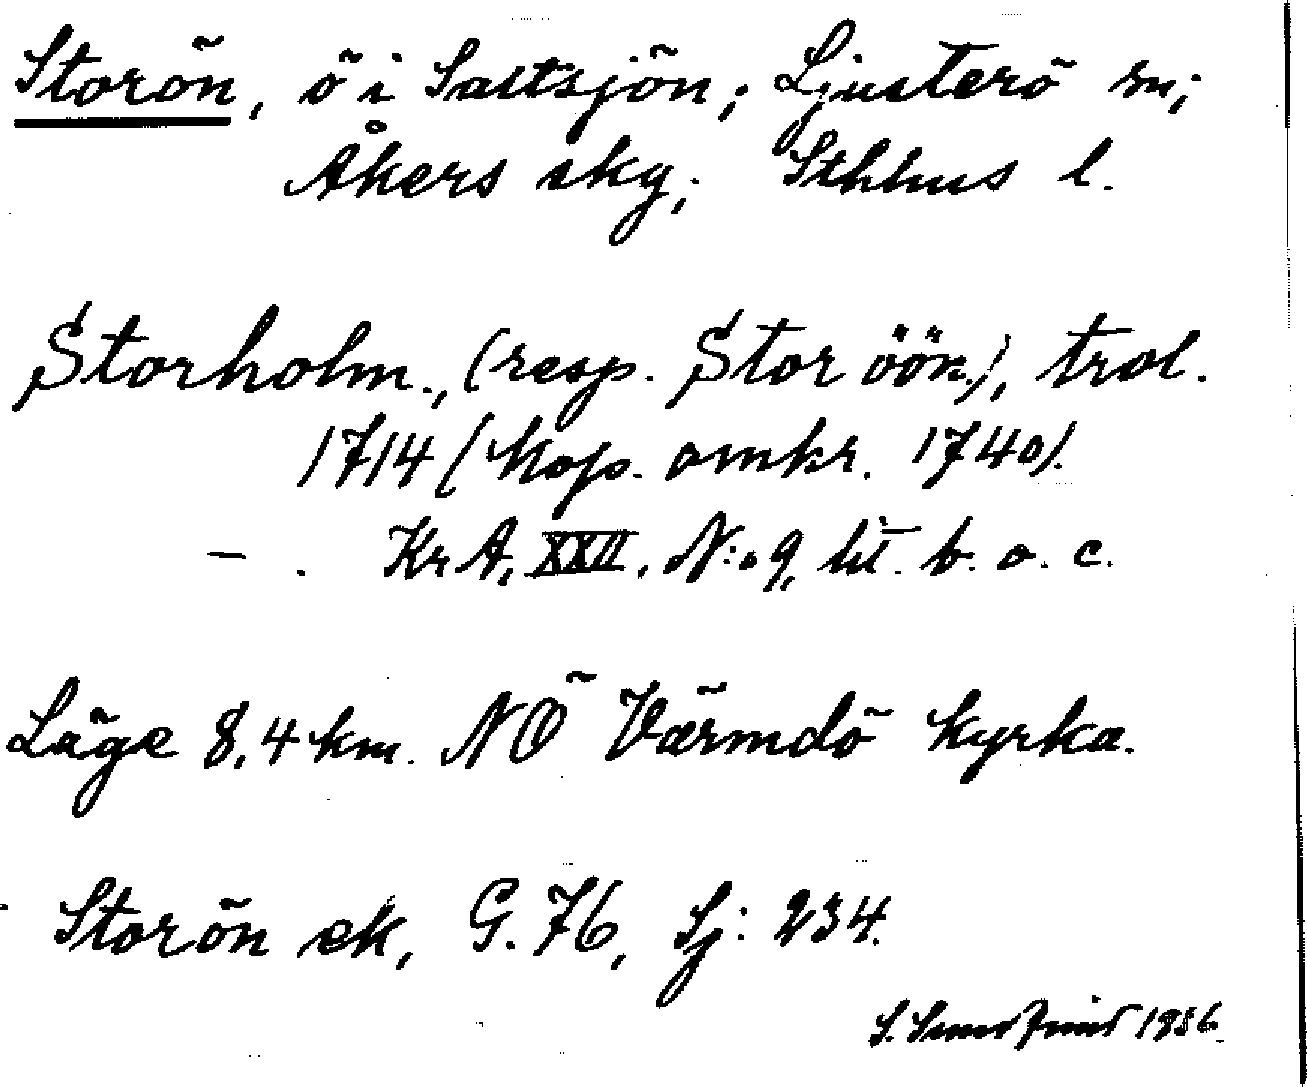 Storön, ö i Saltsjön; Ljusterö sn;
Åkers skg; Sthlms l.
Storholm., (resp. Stor öön.), trol.
1714 (Kop. omkr. 1740).
— . KrA, XXII. N:o 9, lit. b. o. c.
Läge 8,4 km. NÖ Värmdö kyrka.
Storön ek, G. 76, Sj: 234.
S. 1936.